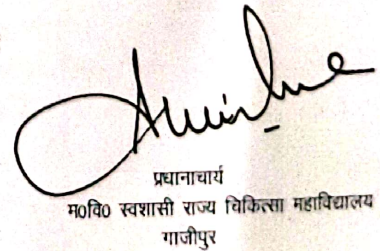 प्रधानाचार्य
म०वि० स्वशासी राज्य चिकित्सा महाविद्यालय
गाजीपुर